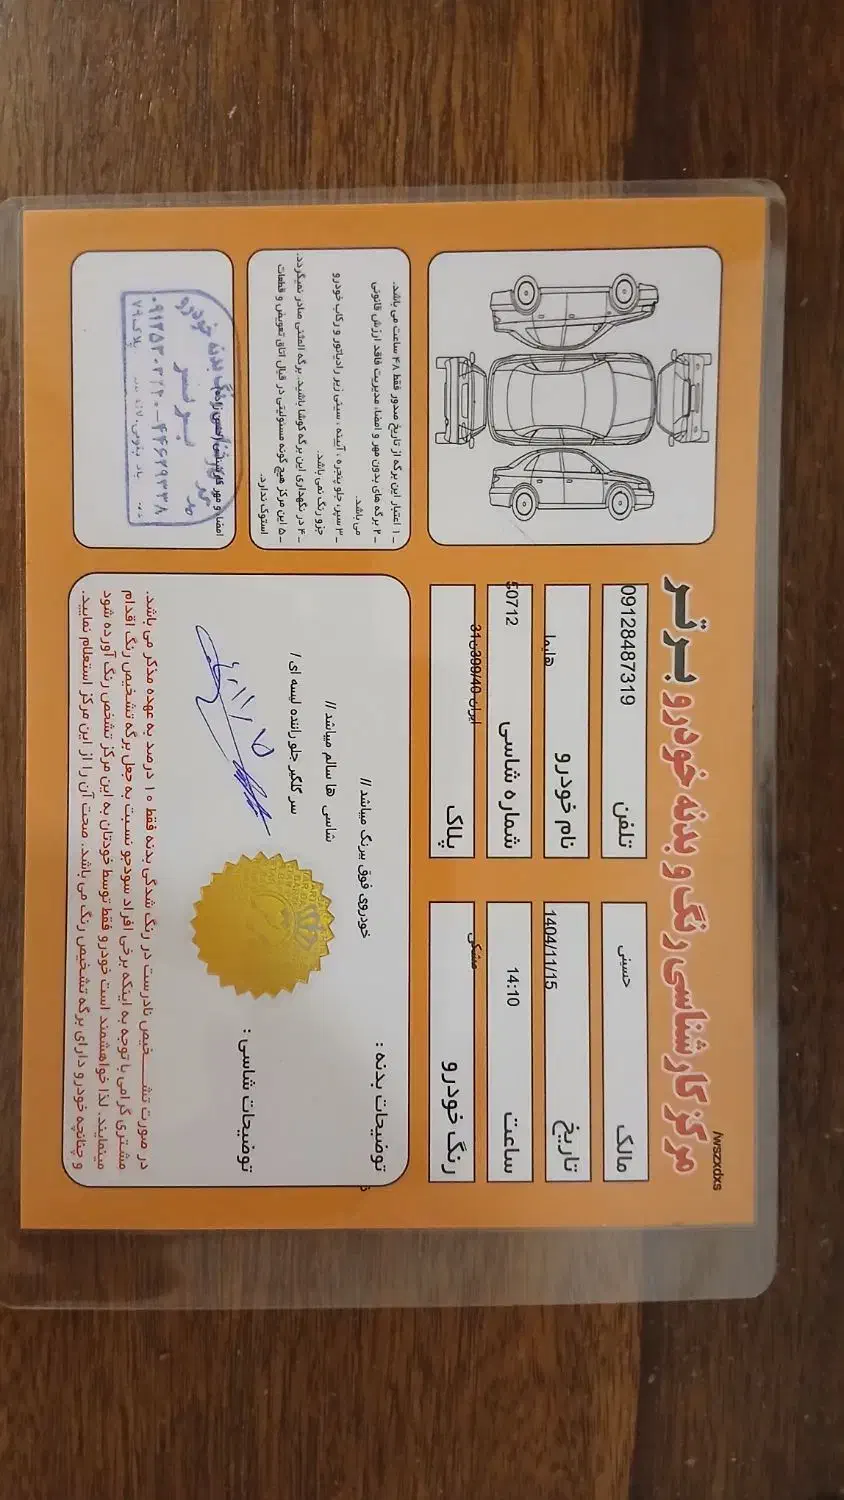 /wszxdxs
مرکز کارشناسی رنگ و بدنه خودرو برتر
مالک حسینی
تلفن 09128487319
تاریخ 1404/11/15
نام خودرو هایما
ساعت 14:10
شماره شاسی 50712
رنگ خودرو مشکی
پلاک
توضیحات بدنه :
خودروی فوق بیرنگ میباشد //
شاسی ها سالم میباشد //
سر گلگیر جلو راننده لیسه ای/
توضیحات شاسی :
در صورت تشخیص نادرست در رنگ شدگی بدنه فقط ۱۰ درصد به عهده مذکر می باشد.
مشتری گرامی با توجه به اینکه برخی افراد سودجو نسبت به جعل برگه تشخیص رنگ اقدام
مینمایند. لذا خواهشمند است خودرو فقط توسط خودتان به این مرکز تشخص رنگ آورده شود
و چنانچه خودرو دارای برگه تشخیص رنگ می باشد. صحت آن را از این مرکز استعلام نمایید.
۱ – اعتبار این برگه از تاریخ صدور فقط ۴۸ ساعت می باشد.
۲ – برگه های بدون مهر و امضاء مدیریت فاقد ارزش قانونی
می باشد.
۳ – سپر، جلو پنجره ، آیینه ، سینی زیر رادیاتور و رکاب خودرو
جزو رنگ نمی باشد.
۴ – در نگهداری این برگه کوشا باشید. برگه المثنی صادر نمیگردد.
۵ – این مرکز هیچ گونه مسئولیتی در قبال اتاق تعویض و قطعات
استوک ندارد.
امضا و مهر کارشناس
رنگ بدنه خودرو
برتر
پلاک ۷۹